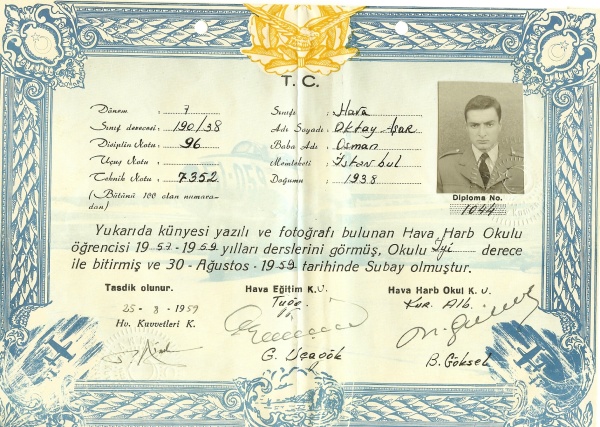 T. C.
Dönem : 7
Sınıf derecesi : 190/38
Disiplin Notu : 96
Uçuş Notu :
Teknik Notu : 7352
(Bütünü 100 olan numara-
dan)
Sınıfı : Hava
Adı Soyadı : Oktay Aşar
Baba Adı : Osman
Memleketi : İstanbul
Doğumu : 1938
Diploma No.
1044
Yukarıda künyesi yazılı ve fotoğrafı bulunan Hava Harb Okulu
öğrencisi 1957 - 1959 yılları derslerini görmüş, Okulu İyi derece
ile bitirmiş ve 30 - Ağustos - 1959 tarihinde Subay olmuştur.
Tasdik olunur.
25 - 8 - 1959
Hv. Kuvvetleri K.
Hava Eğitim K. U.
Tuğg
G. Uçagök
Hava Harb Okul K. U.
Kur. Alb.
B. Göksel